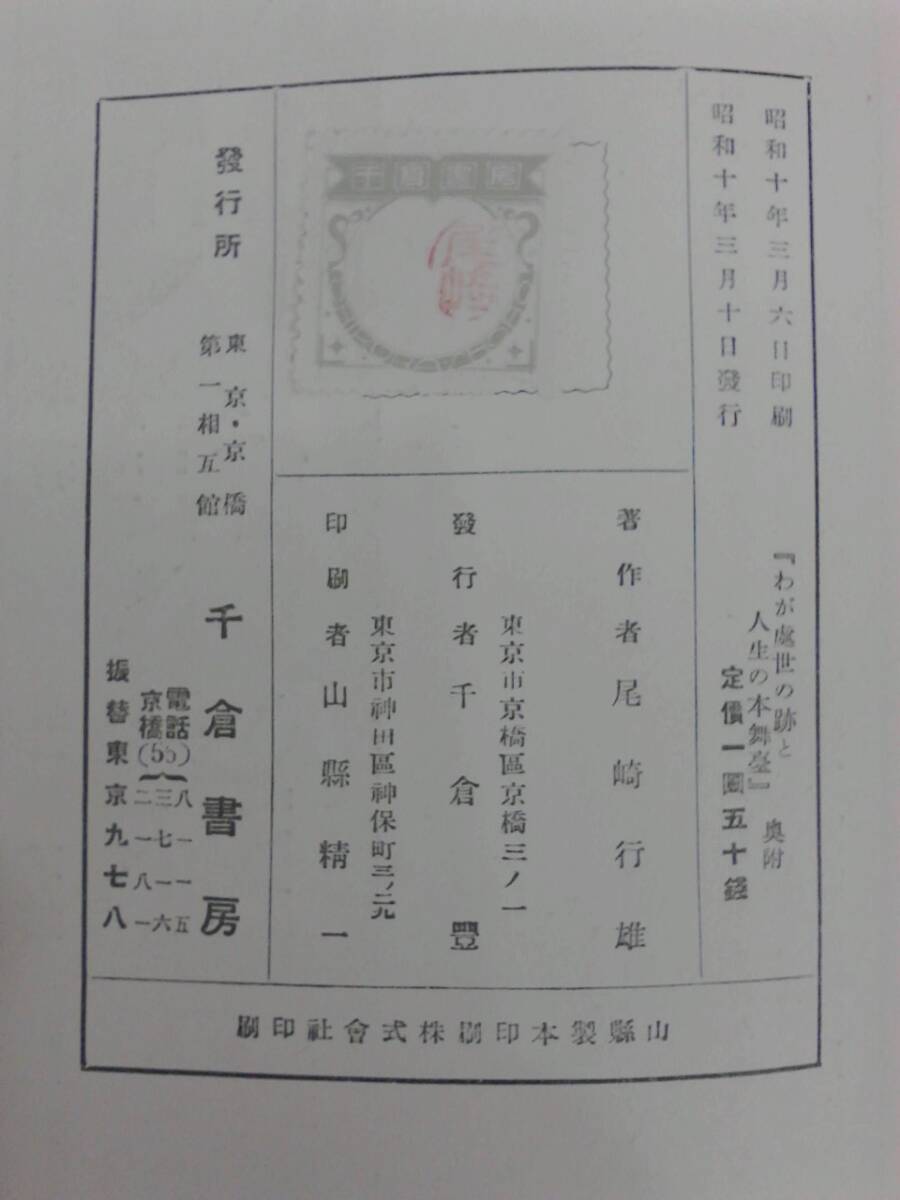 昭和十年三月六日印刷
昭和十年三月十日發行
『わが處世の跡と
人生の本舞臺』
奥附
定價一圓五十錢
千倉書房
著作者 尾崎行雄
東京市京橋區京橋三ノ一
發行者 千倉豐
東京市神田區神保町三ノ元
印刷者 山縣精一
發行所
東京・京橋
第一相互館
千倉書房
電話
京橋(56)
八一一五
三七一六
二一八一
振替東京九七八
山縣製本印刷株式會社印刷